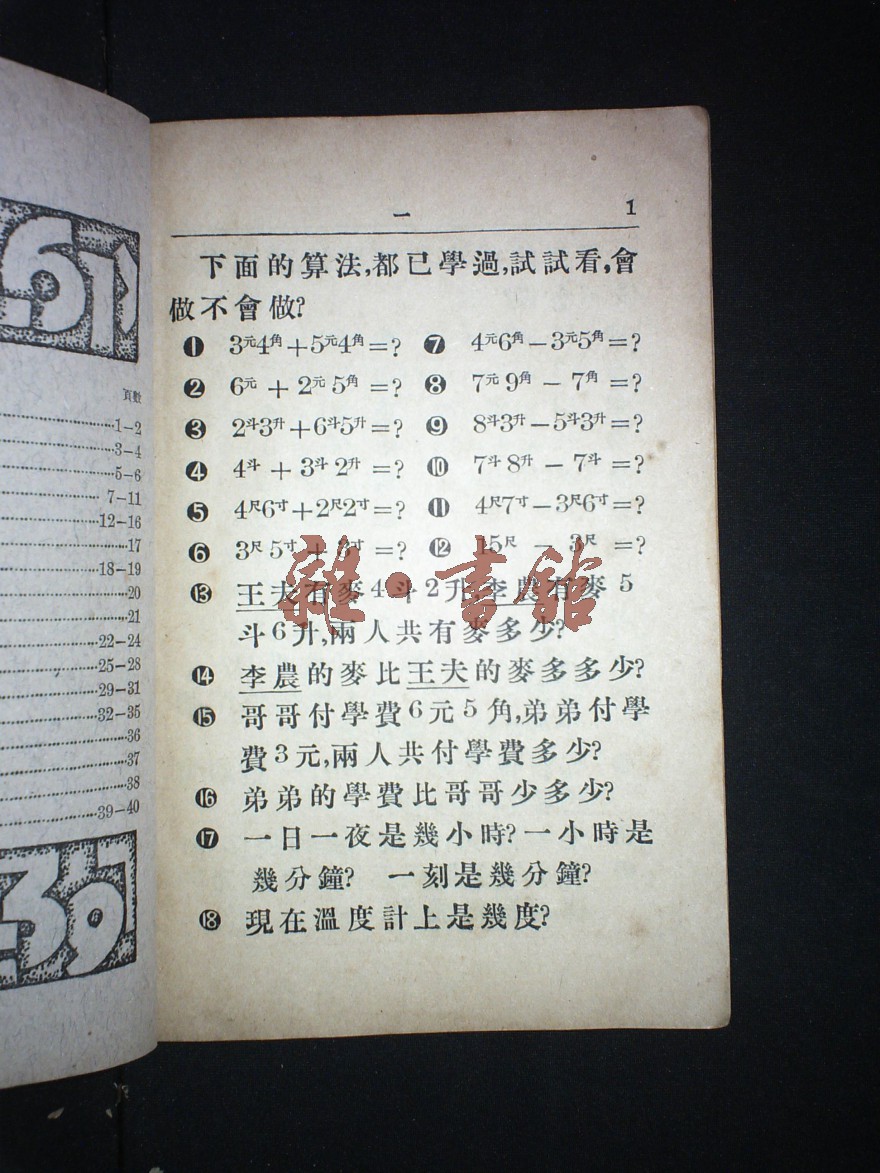 頁數
1–2
3–4
5–6
7–11
12–16
17
18–19
20
21
22–24
25–28
29–31
32–35
36
37
38
39–40
一 1
下面的算法,都已學過,試試看,會
做不會做?
❶ 3元4角+5元4角=? ❼ 4元6角−3元5角=?
❷ 6元 + 2元 5角 =? ❽ 7元 9角 − 7角 =?
❸ 2斗3升+6斗5升=? ❾ 8斗3升−5斗3升=?
❹ 4斗 + 3斗 2升 =? ❿ 7斗 8升 − 7斗 =?
❺ 4尺6寸+2尺2寸=? ⓫ 4尺7寸−3尺6寸=?
❻ 3尺 5寸 + 3寸 =? ⓬ 15尺 − 3尺 =?
雜·書館
⓭ 王夫有麥4斗2升,李農有麥5
斗6升,兩人共有麥多少?
⓮ 李農的麥比王夫的麥多多少?
⓯ 哥哥付學費6元5角,弟弟付學
費3元,兩人共付學費多少?
⓰ 弟弟的學費比哥哥少多少?
⓱ 一日一夜是幾小時?一小時是
幾分鐘? 一刻是幾分鐘?
⓲ 現在溫度計上是幾度?